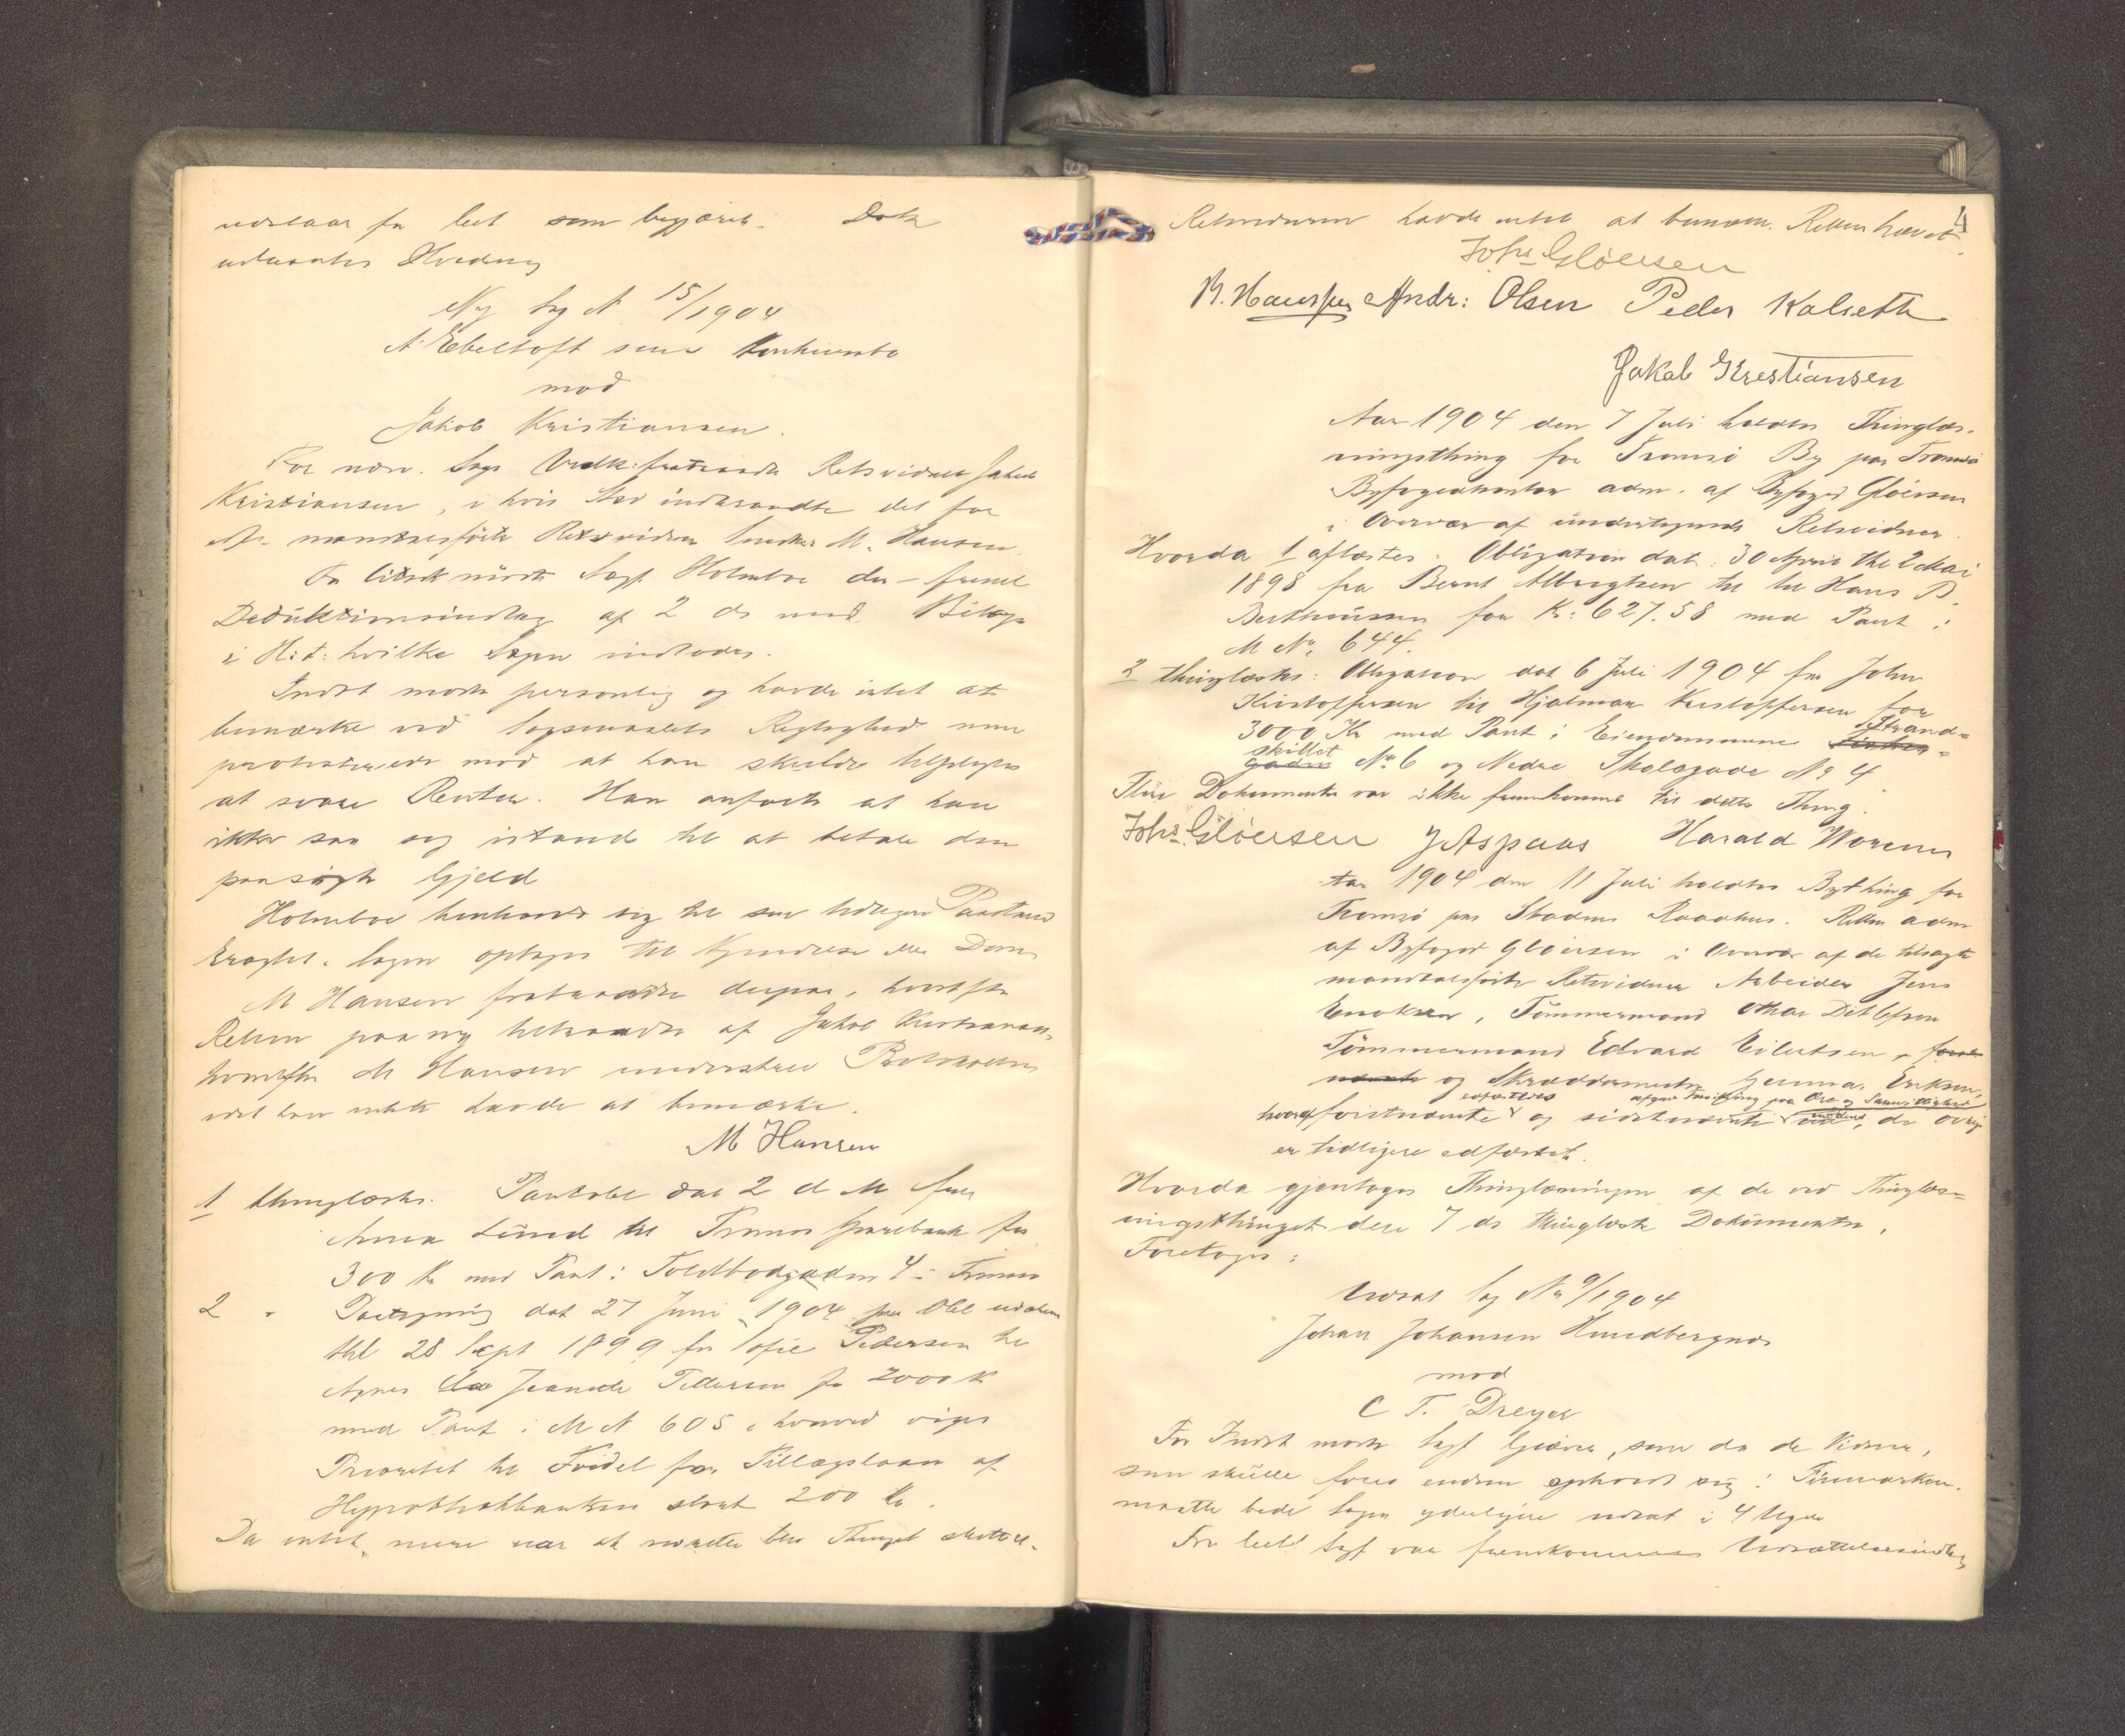 udslaar for Cit som begjæret. Dok
udvantes Hvedning
Ny Sag N 15/1904
A. Ebeltoft senr Konkursbo
mod
Jakob Kristiansen.
For nærv. Sags Vedk: fratraadte Retsvidnet Jakob
Kristiansen, i hvis Sted indtraadte det for
mandtalsførte Retsvidne Snedker M. Hansen.
For Citsk mødte Sagf. Holmboe der freml
Deduktionsindlæg af 2 ds med Bilag
i H: t: hvilke Sagen indlodes.
Indst mødte personlig og havde intet at
bemærke ved Sagsmaalets Rigtighed men
protesterede mod at han skulde tilpligtes
at svare Renter. Han anførte at han
ikke saa sig istand til at betale den
paasøgte Gjeld
Holmboe henholdt sig til sin tidligere Paastand
Eragtet: Sagen optages til Kjendelse eller Dom
M Hansen fratraadte derpaa, hvorefter
Retten paa ny tiltraadtes af Jakob Kristiansen,
hvorefter M Hansen underskrev Protokollen
idet han intet havde at bemærke.
M Hansen
1 thinglæstes. Pantobl dat 2 d M fra
Anna Lund til Tromsø Sparebank for
300 Kr med Pant i Toldbodgaden 4 i Tromsø
2 " Paategning dat 27 Juni 1904 paa Obl
thl 28 Sept 1899 fra Sofie Pedersen til
Agnes Jeanette Pettersen for 2000 K
med Pant i M N 605, hvorved viges
Prioritet til Fordel for Tillægslaan af
Hypothekbanken stort 200 Kr.
Da intet mere var at foretage blev Thinget sluttet.
4
Retsvidnerne havde intet at bemærk. Retten hævet.
Johs Gløersen
M. Hansen Andr: Olsen Peder Kalseth
Jakob Kristiansen
Aar 1904 den 7 Juli holdtes Thinglæs-
ningsthing for Tromsø By paa Tromsø
Byfogedkontor adm. af Byfoged Gløersen
i Overvær af undertegnede Retsvidner
Hvorda 1 aflæstes: Obligation dat. 30 April thl 2 Mai
1898 fra Bernt Albrigtsen til Hans B.
Bertheussen for Kr: 627.58 med Pant i
M No 644.
2 thinglæstes: Obligation dat 6 Juli 1904 fra John
Kristoffersen til Hjalmar Kristoffersen for
3000 Kr med Pant i Eiendommene Strand=
skillet No 6 og Nedre Skolegade No 4
Flere Dokumenter var ikke fremkomne til dette Thing.
Johs Gløersen J Aspaas Harald Worum
Aar 1904 den 11 Juli holdtes Bything for
Tromsø paa Stadens Raadhus. Retten adm
af Byfoged Gløersen i Overvær af de tilsagte
mandtalsførte Retsvidner Arbeider Jens
Enoksen, Tømmermand Othar Detlefsen
Tømmermand Edvard Eilertsen,
og Skræddermester Gunnar Eriksen,
edfæstedes afgav Forsikring paa Ære og Samvittighed
hvoraf førstnævnte og sidstnævnte , de øvrige
er tidligere edfæstet.
Hvorda gjentoges Thinglæsningen af de ved Thinglæs=
ningsthinget den 7 ds thinglæste Dokumenter.
Foretoges:
Udsat Sag No 9/1904
Johan Johansen Hundbergnes
mod
C T. Dreyer
For Indst mødte Sagf Gjæver, som da de Vidner,
som skulle føres endnu opholdt sig i Finmarken.
maatte bede Sagen yderligere udsat i 4 Uger
Fra Cits Sagf var fremkommet Udsættelsesindlæg